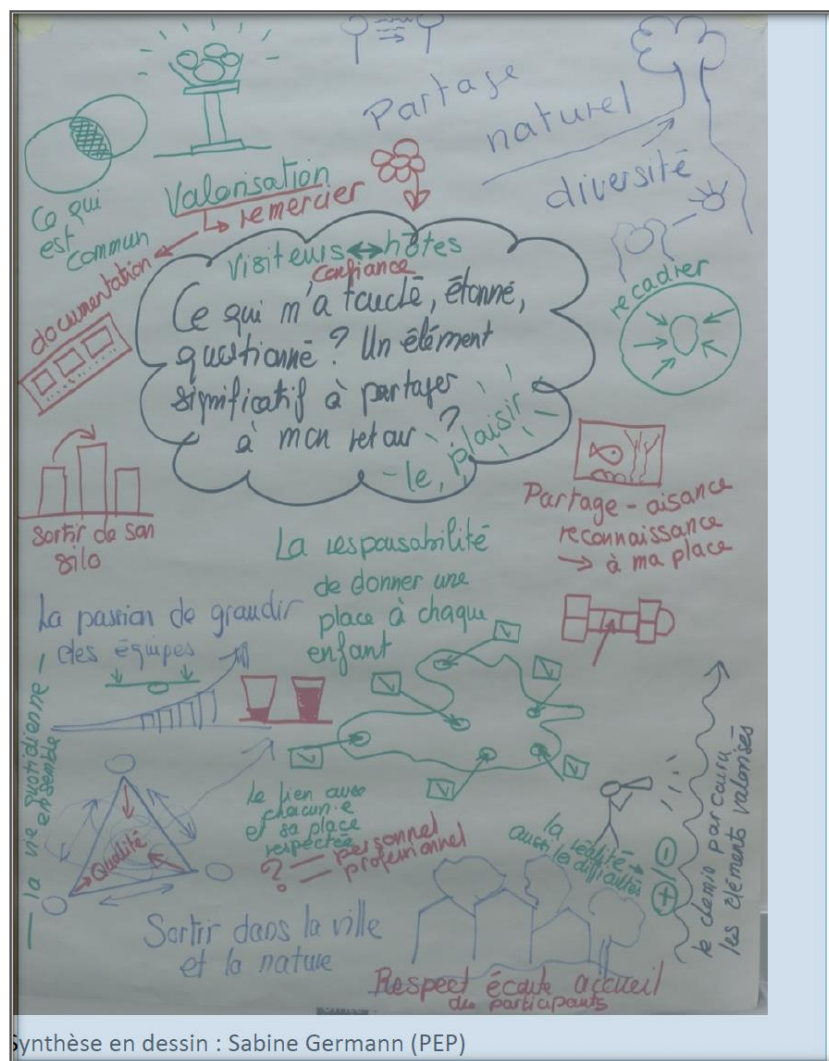 Partage
naturel
diversité
Ce qui
est
commun
Valorisation
↳ remercier
documentation
recadrer
visiteurs ↔ hôtes
confiance
Ce qui m'a touché, étonné,
questionné ? Un élément
significatif à partager
à mon retour ?
- le plaisir
sortir de son
silo
Partage - aisance
reconnaissance
→ à ma place
La responsabilité
de donner une
place à chaque
enfant
La passion de grandir
des équipes
— la vie quotidienne —
ensemble
Qualité
Le lien avec
chacun·e
et sa place
respectée
? = personnel
= professionnel
la réalité →
aussi les difficultés
-
+
le chemin parcouru
les éléments valorisés
Sortir dans la ville
et la nature
Respect écoute accueil
des participants
Synthèse en dessin : Sabine Germann (PEP)